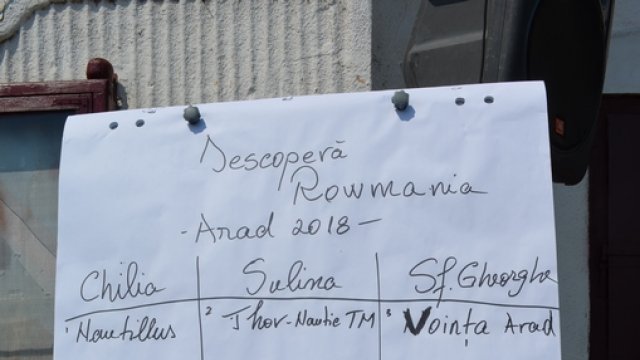 Descoperă
Rowmania
- Arad 2018 -
Chilia Sulina Sf. Gheorghe
1 Nautillus 2 Thor-Nautic TM 3 Voința Arad